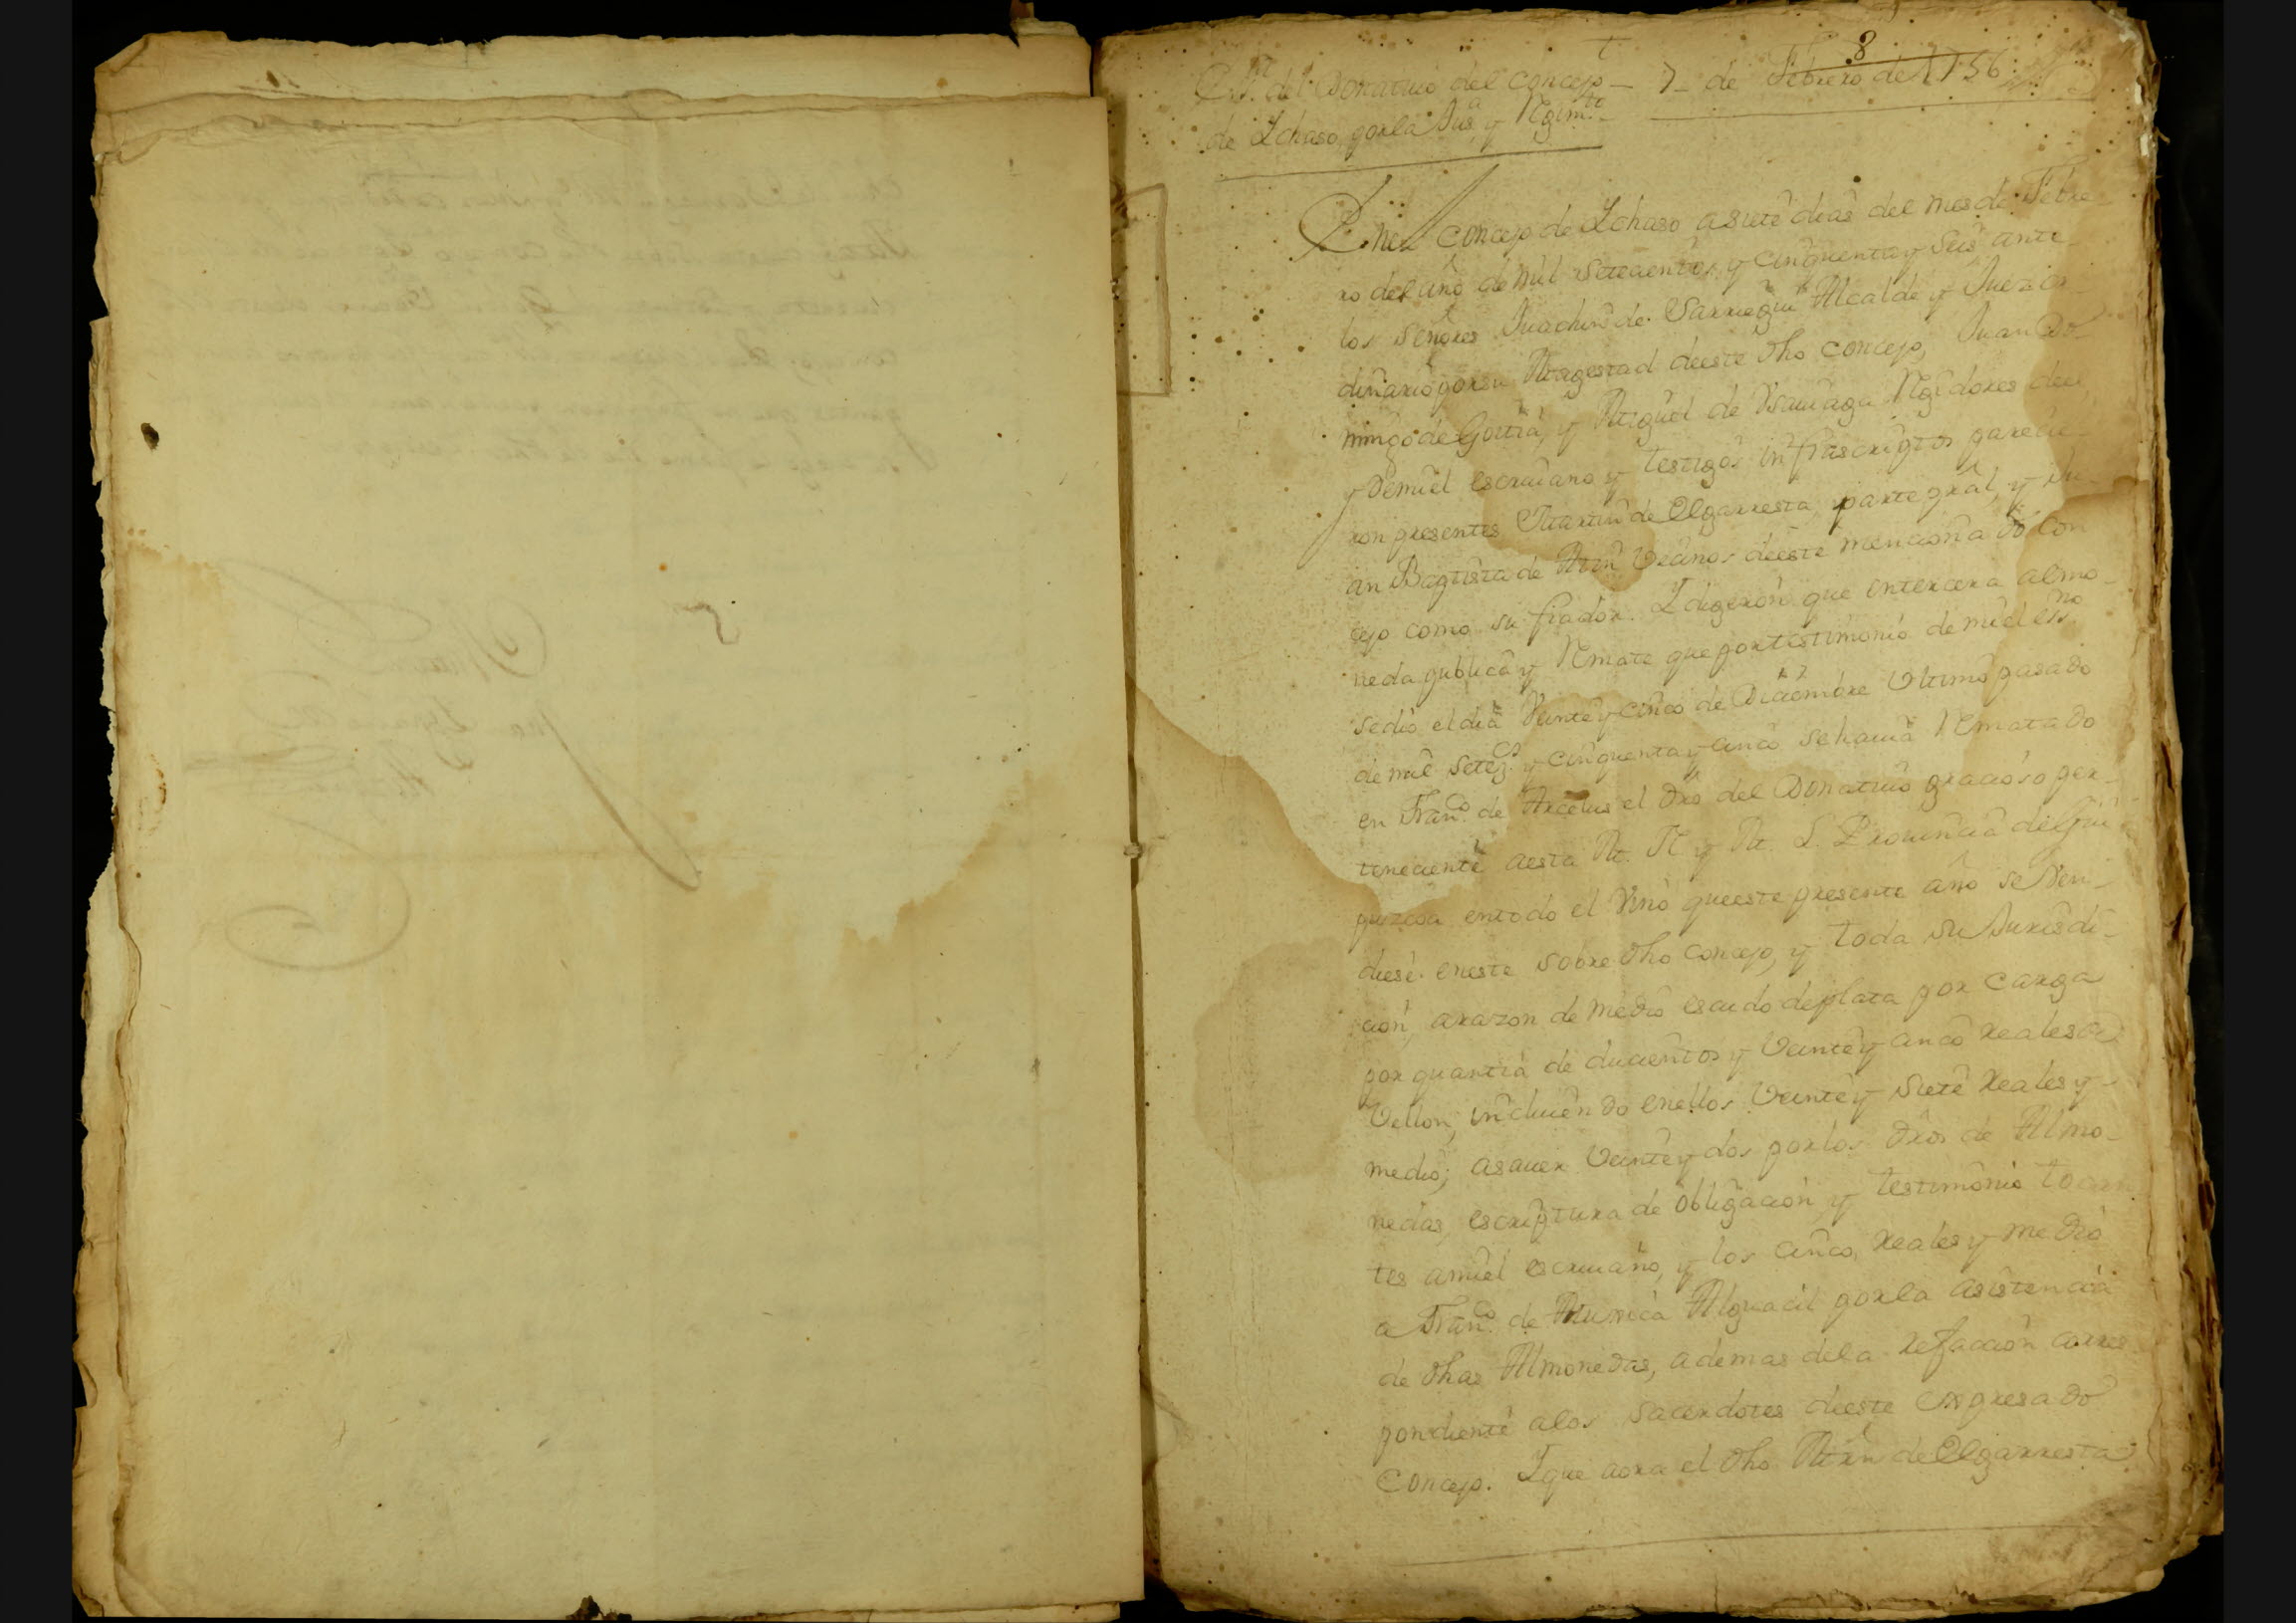 8
del Donatiuo del Concejo — 7 — de Febrero de 1756
de Ichaso, por la Jusª y Regimto
En el Concejo de Ichaso a siete dias del mes de Febre-
ro del año de mil setecientos y cinquenta y seis ante
los señores Juachin de Sarriegui Alcalde y Juez or-
dinario por su Magestad de este dho Concejo, Juan Do-
mingo de Goitia, y Miguel de Regidores de el
y de mi el escriuano y testigos infrascriptos parecie-
ron presentes Martin de Elgarresta, parte pral, y Ju-
an Baptista de Mrn Vecinos de este mencionado Con-
cejo como su fiador. I digeron que en tercera almo-
neda publica y Remate que por testimonio de mi el essno
se dio el dia Veinte y cinco de Diciembre Ultimo pasado
de mil seteços y cinquenta y cinco se hauia Rematado
en Franco de Arcelus el dro del Donatiuo gracioso per-
teneciente a esta M. N. y M. L. Prouincia de Gui-
puzcoa en todo el Vino que este presente año se Ven-
diese en este sobre dho Concejo, y toda su Jurisdi-
cion, a razon de medio escudo de plata por carga
por quantia de ducientos y Veinte y cinco reales de
Vellon, incluiendo en ellos Veinte y siete reales y
medio; a sauer Veinte y dos por los dros de Almo-
nedas, escriptura de obligacion y testimonio tocan-
tes a mi el escriuano, y los cinco reales y medio
a Franco de Alguacil por la asistencia
de dhas Almonedas, ademas de la refaccion corres-
pondiente a los sacerdotes de este expresado
Concejo. I que aora el dho Mrn de Elgarresta